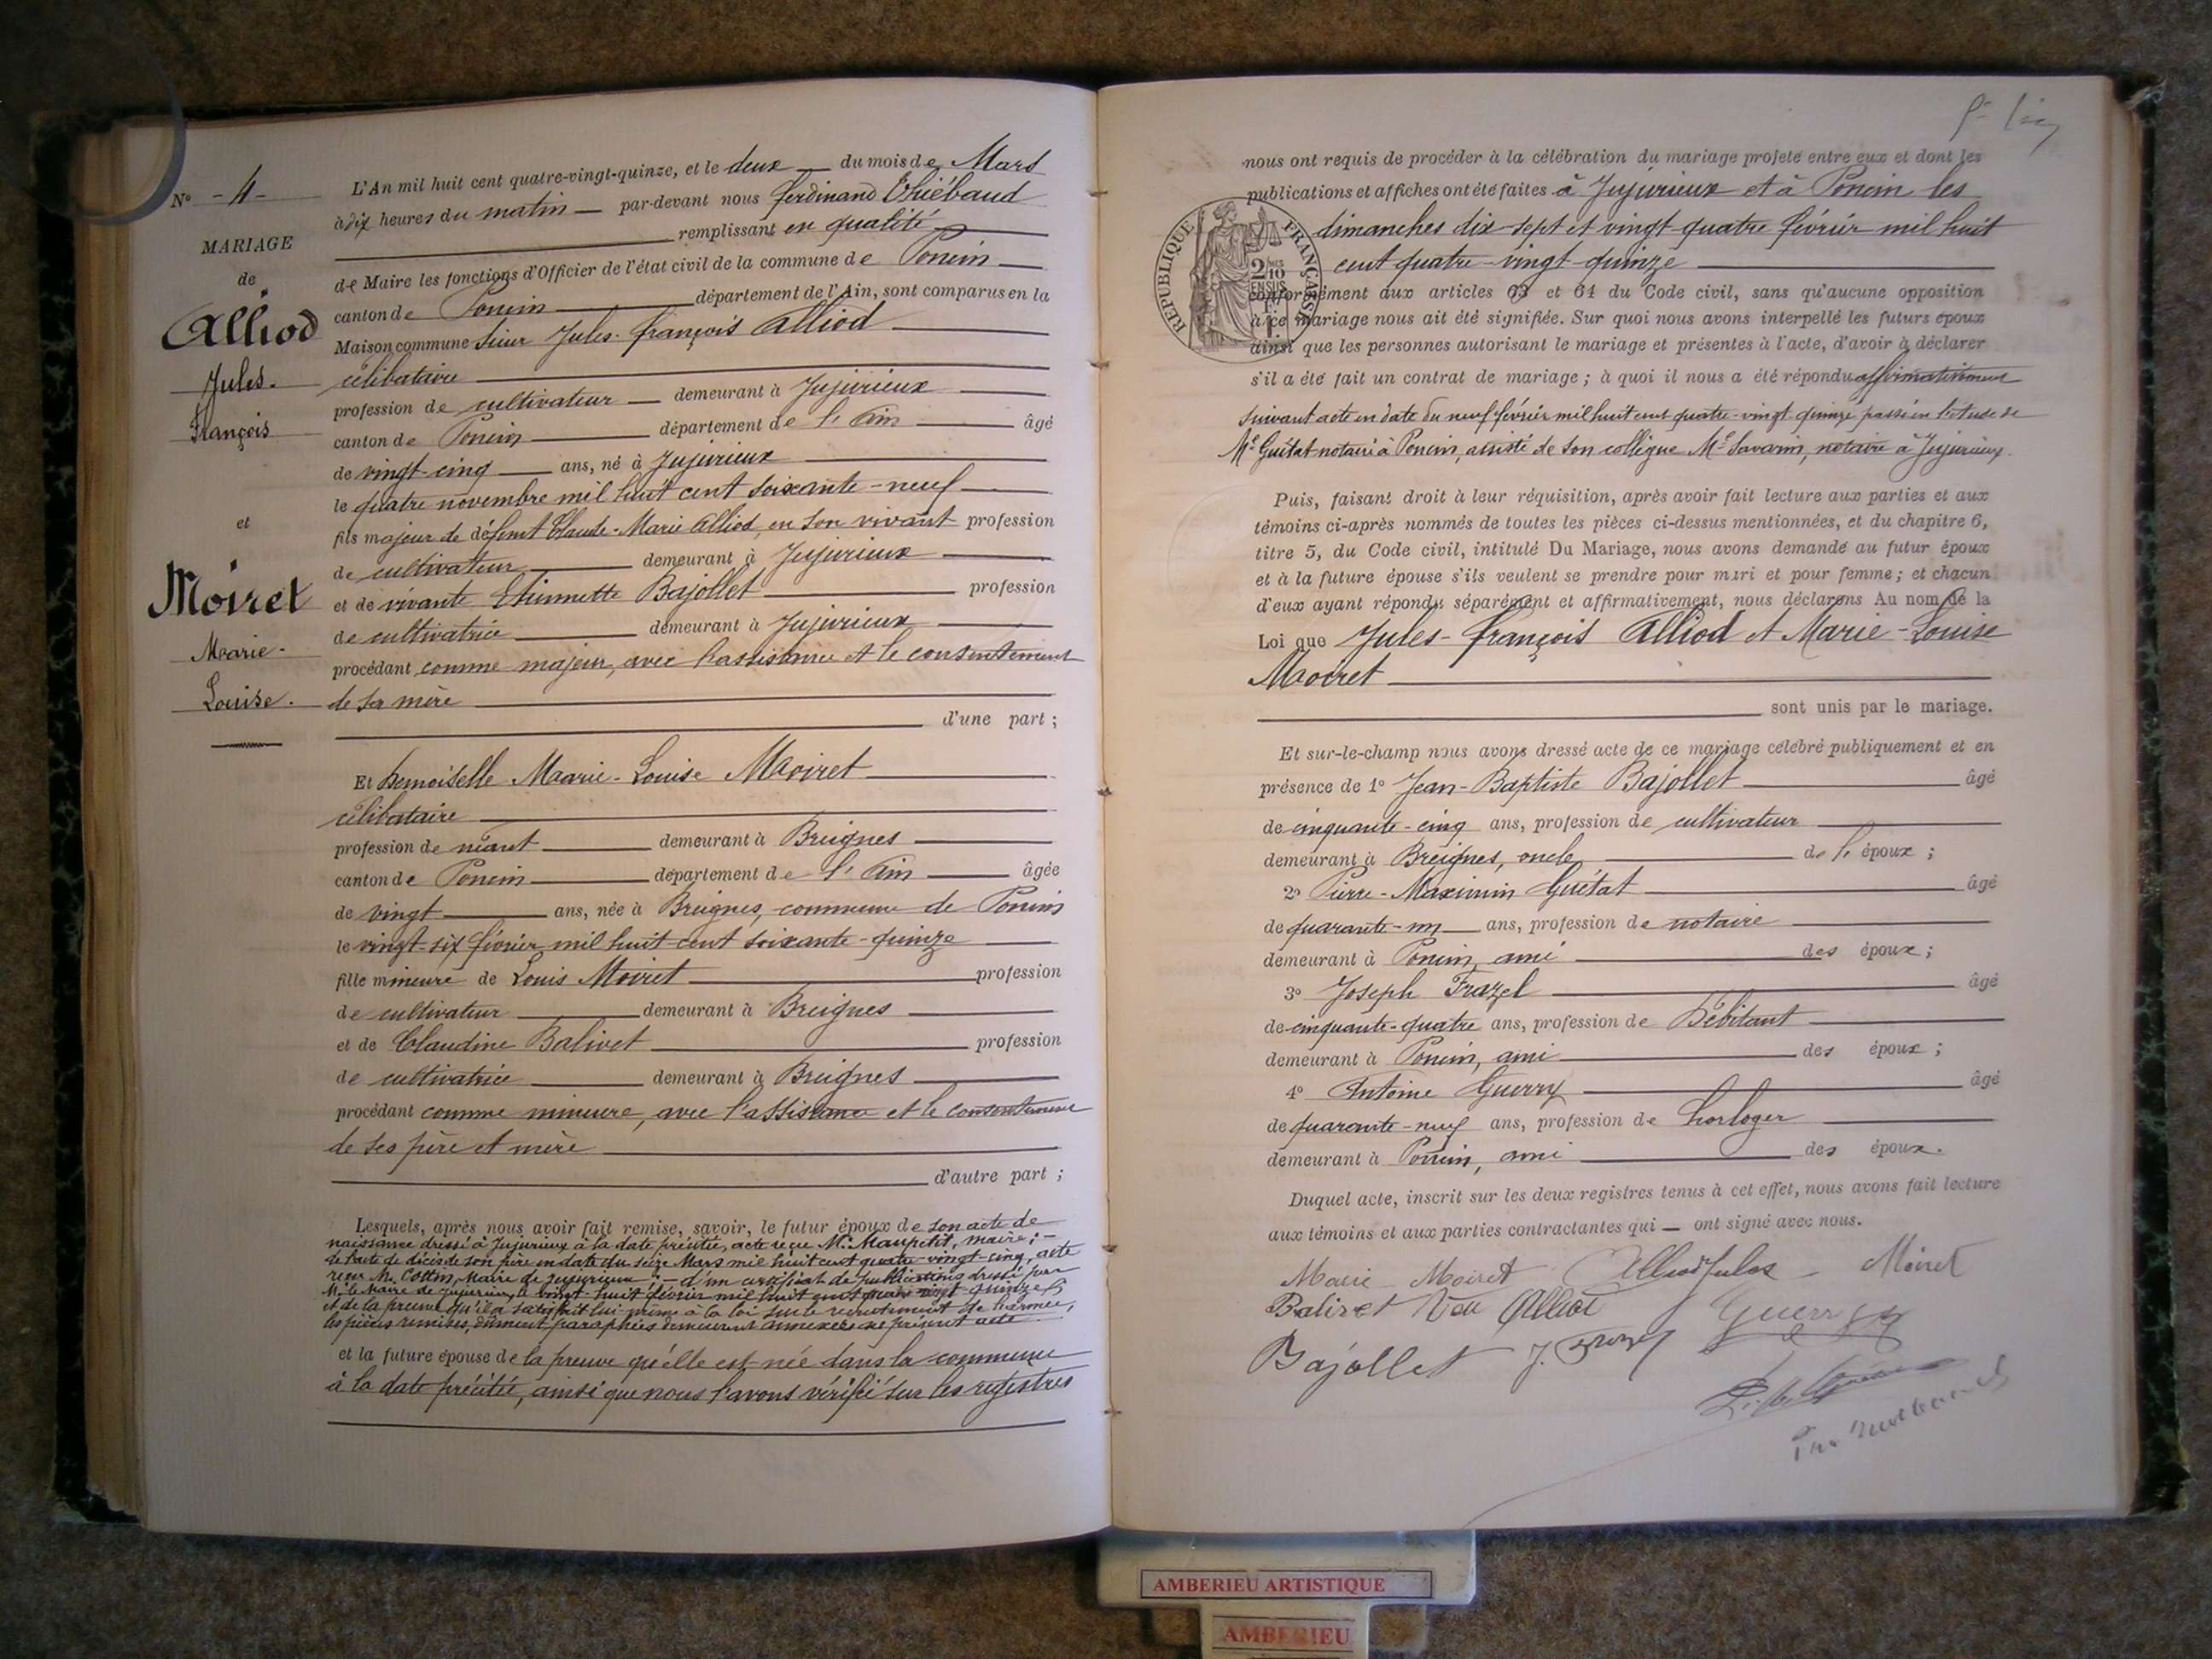 N° - 4 -
MARIAGE
de
Alliod
Jules-
François
et
Moiret
Marie-
Louise.
L'An mil huit cent quatre-vingt-quinze, et le deux du mois de Mars
à dix heures du matin par-devant nous Ferdinand Thiébaud
remplissant en qualité
de Maire les fonctions d'Officier de l'état civil de la commune de Poncin
canton de Poncin département de l'Ain, sont comparus en la
Maison commune Sieur Jules-François Alliod
célibataire
profession de cultivateur demeurant à Jujurieux
canton de Poncin département de l'Ain âgé
de vingt-cinq ans, né à Jujurieux
le quatre novembre mil huit cent soixante-neuf
fils majeur de défunt Claude-Marie Alliod, en son vivant profession
de cultivateur demeurant à Jujurieux
et de vivante Etiennette Bajollet profession
de cultivatrice demeurant à Jujurieux
procédant comme majeur, avec l'assistance et le consentement
de sa mère
d'une part ;
Et Demoiselle Marie-Louise Moiret
célibataire
profession de néant demeurant à Breignes
canton de Poncin département de l'Ain âgée
de vingt ans, née à Breignes, commune de Poncin
le vingt-six février mil huit cent soixante-quinze
fille mineure de Louis Moiret profession
de cultivateur demeurant à Breignes
et de Claudine Balivet profession
de cultivatrice demeurant à Breignes
procédant comme mineure, avec l'assistance et le consentement
de ses père et mère
d'autre part ;
Lesquels, après nous avoir fait remise, savoir, le futur époux de son acte de
naissance dressé à Jujurieux à la date précitée, acte reçu Mr Maupetit, maire ; -
de l'acte de décès de son père en date du seize Mars mil huit cent quatre-vingt-cinq, acte
reçu Mr Cottin, Maire de Jujurieux ; - d'un certificat de publications dressé par
Mr le Maire de Jujurieux, le vingt-huit février mil huit cent quatre-vingt-quinze
et de la preuve qu'il a satisfait lui même à la loi sur le recrutement de l'armée,
les pièces remises, dûment paraphées demeurent annexées au présent acte
et la future épouse de la preuve qu'elle est née dans la commune
à la date précitée, ainsi que nous l'avons vérifié sur les registres
nous ont requis de procéder à la célébration du mariage projeté entre eux et dont les
publications et affiches ont été faites à Jujurieux et à Poncin les
dimanches dix-sept et vingt-quatre février mil huit
cent quatre-vingt-quinze
REPUBLIQUE FRANÇAISE
conformément aux articles 63 et 64 du Code civil, sans qu'aucune opposition
à ce mariage nous ait été signifiée. Sur quoi nous avons interpellé les futurs époux
ainsi que les personnes autorisant le mariage et présentes à l'acte, d'avoir à déclarer
s'il a été fait un contrat de mariage ; à quoi il nous a été répondu affirmativement
suivant acte en date du neuf février mil huit cent quatre-vingt-quinze passé en l'étude de
Me Guétat notaire à Poncin, assisté de son collègue Me Savarin, notaire à Jujurieux.
Puis, faisant droit à leur réquisition, après avoir fait lecture aux parties et aux
témoins ci-après nommés de toutes les pièces ci-dessus mentionnées, et du chapitre 6,
titre 5, du Code civil, intitulé Du Mariage, nous avons demandé au futur époux
et à la future épouse s'ils veulent se prendre pour mari et pour femme ; et chacun
d'eux ayant répondu séparément et affirmativement, nous déclarons Au nom de la
Loi que Jules-François Alliod et Marie-Louise
Moiret
sont unis par le mariage.
Et sur-le-champ nous avons dressé acte de ce mariage célébré publiquement et en
présence de 1° Jean-Baptiste Bajollet âgé
de cinquante-cinq ans, profession de cultivateur
demeurant à Breignes, oncle de l'époux ;
2° Pierre-Maximin Guétat âgé
de quarante-un ans, profession de notaire
demeurant à Poncin, ami des époux ;
3° Joseph Frazel âgé
de cinquante-quatre ans, profession de Débitant
demeurant à Poncin, ami des époux ;
4° Antoine Guerry âgé
de quarante-neuf ans, profession de horloger
demeurant à Poncin, ami des époux.
Duquel acte, inscrit sur les deux registres tenus à cet effet, nous avons fait lecture
aux témoins et aux parties contractantes qui ont signé avec nous.
Marie Moiret Alliod Jules Moiret
Balivet Vve Alliod Guerry
Bajollet J. Frazel
AMBERIEU ARTISTIQUE
AMBERIEU